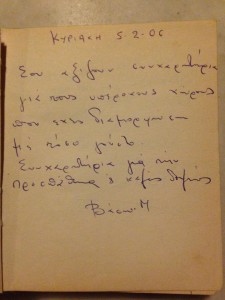 Κυριακη 5-2-06
Σου αξίζουν συγχαρητήρια
για τους υπέροχους χώρους
που έχεις διαμορφώσει
με τόσο γούστο.
Συγχαρητήρια για την
προσπάθεια
Βάσω Μ